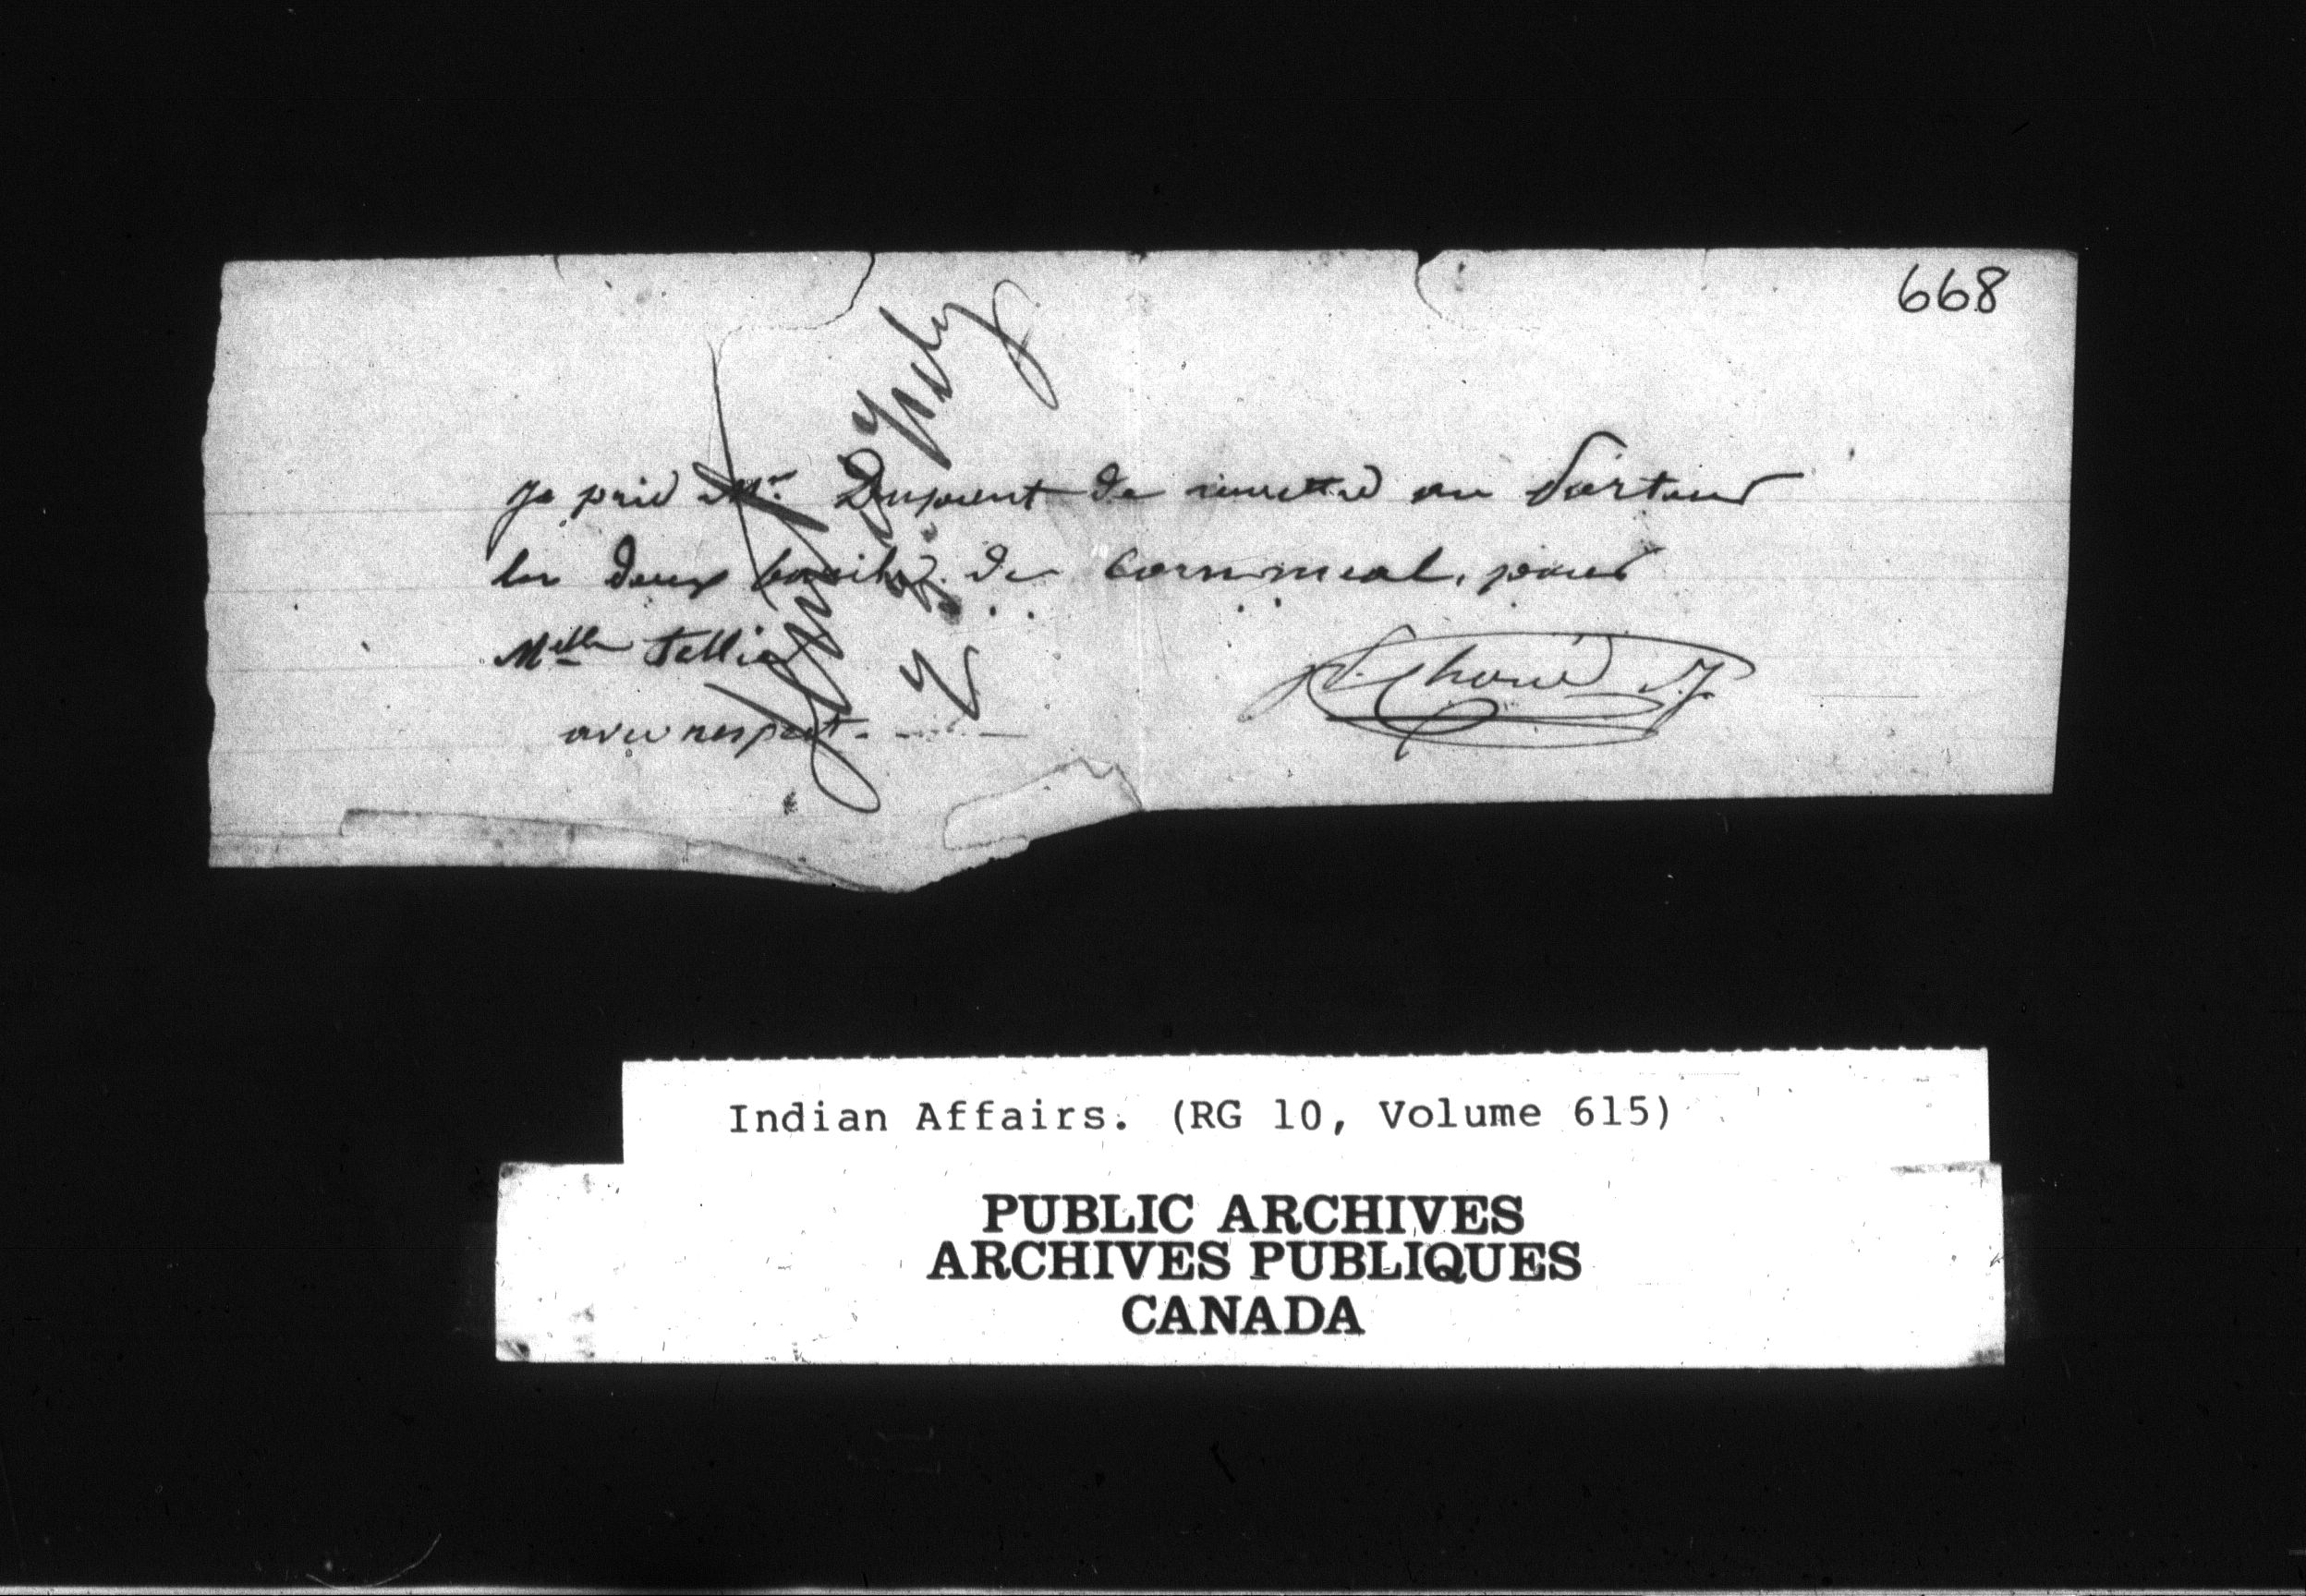 668
Je prie Mr. Dupont de remettre au Porteur
les deux barils de Cornmeal, pour
Melle Tellier
avec respect.
Choné S.J.
Indian Affairs. (RG 10, Volume 615)
PUBLIC ARCHIVES
ARCHIVES PUBLIQUES
CANADA